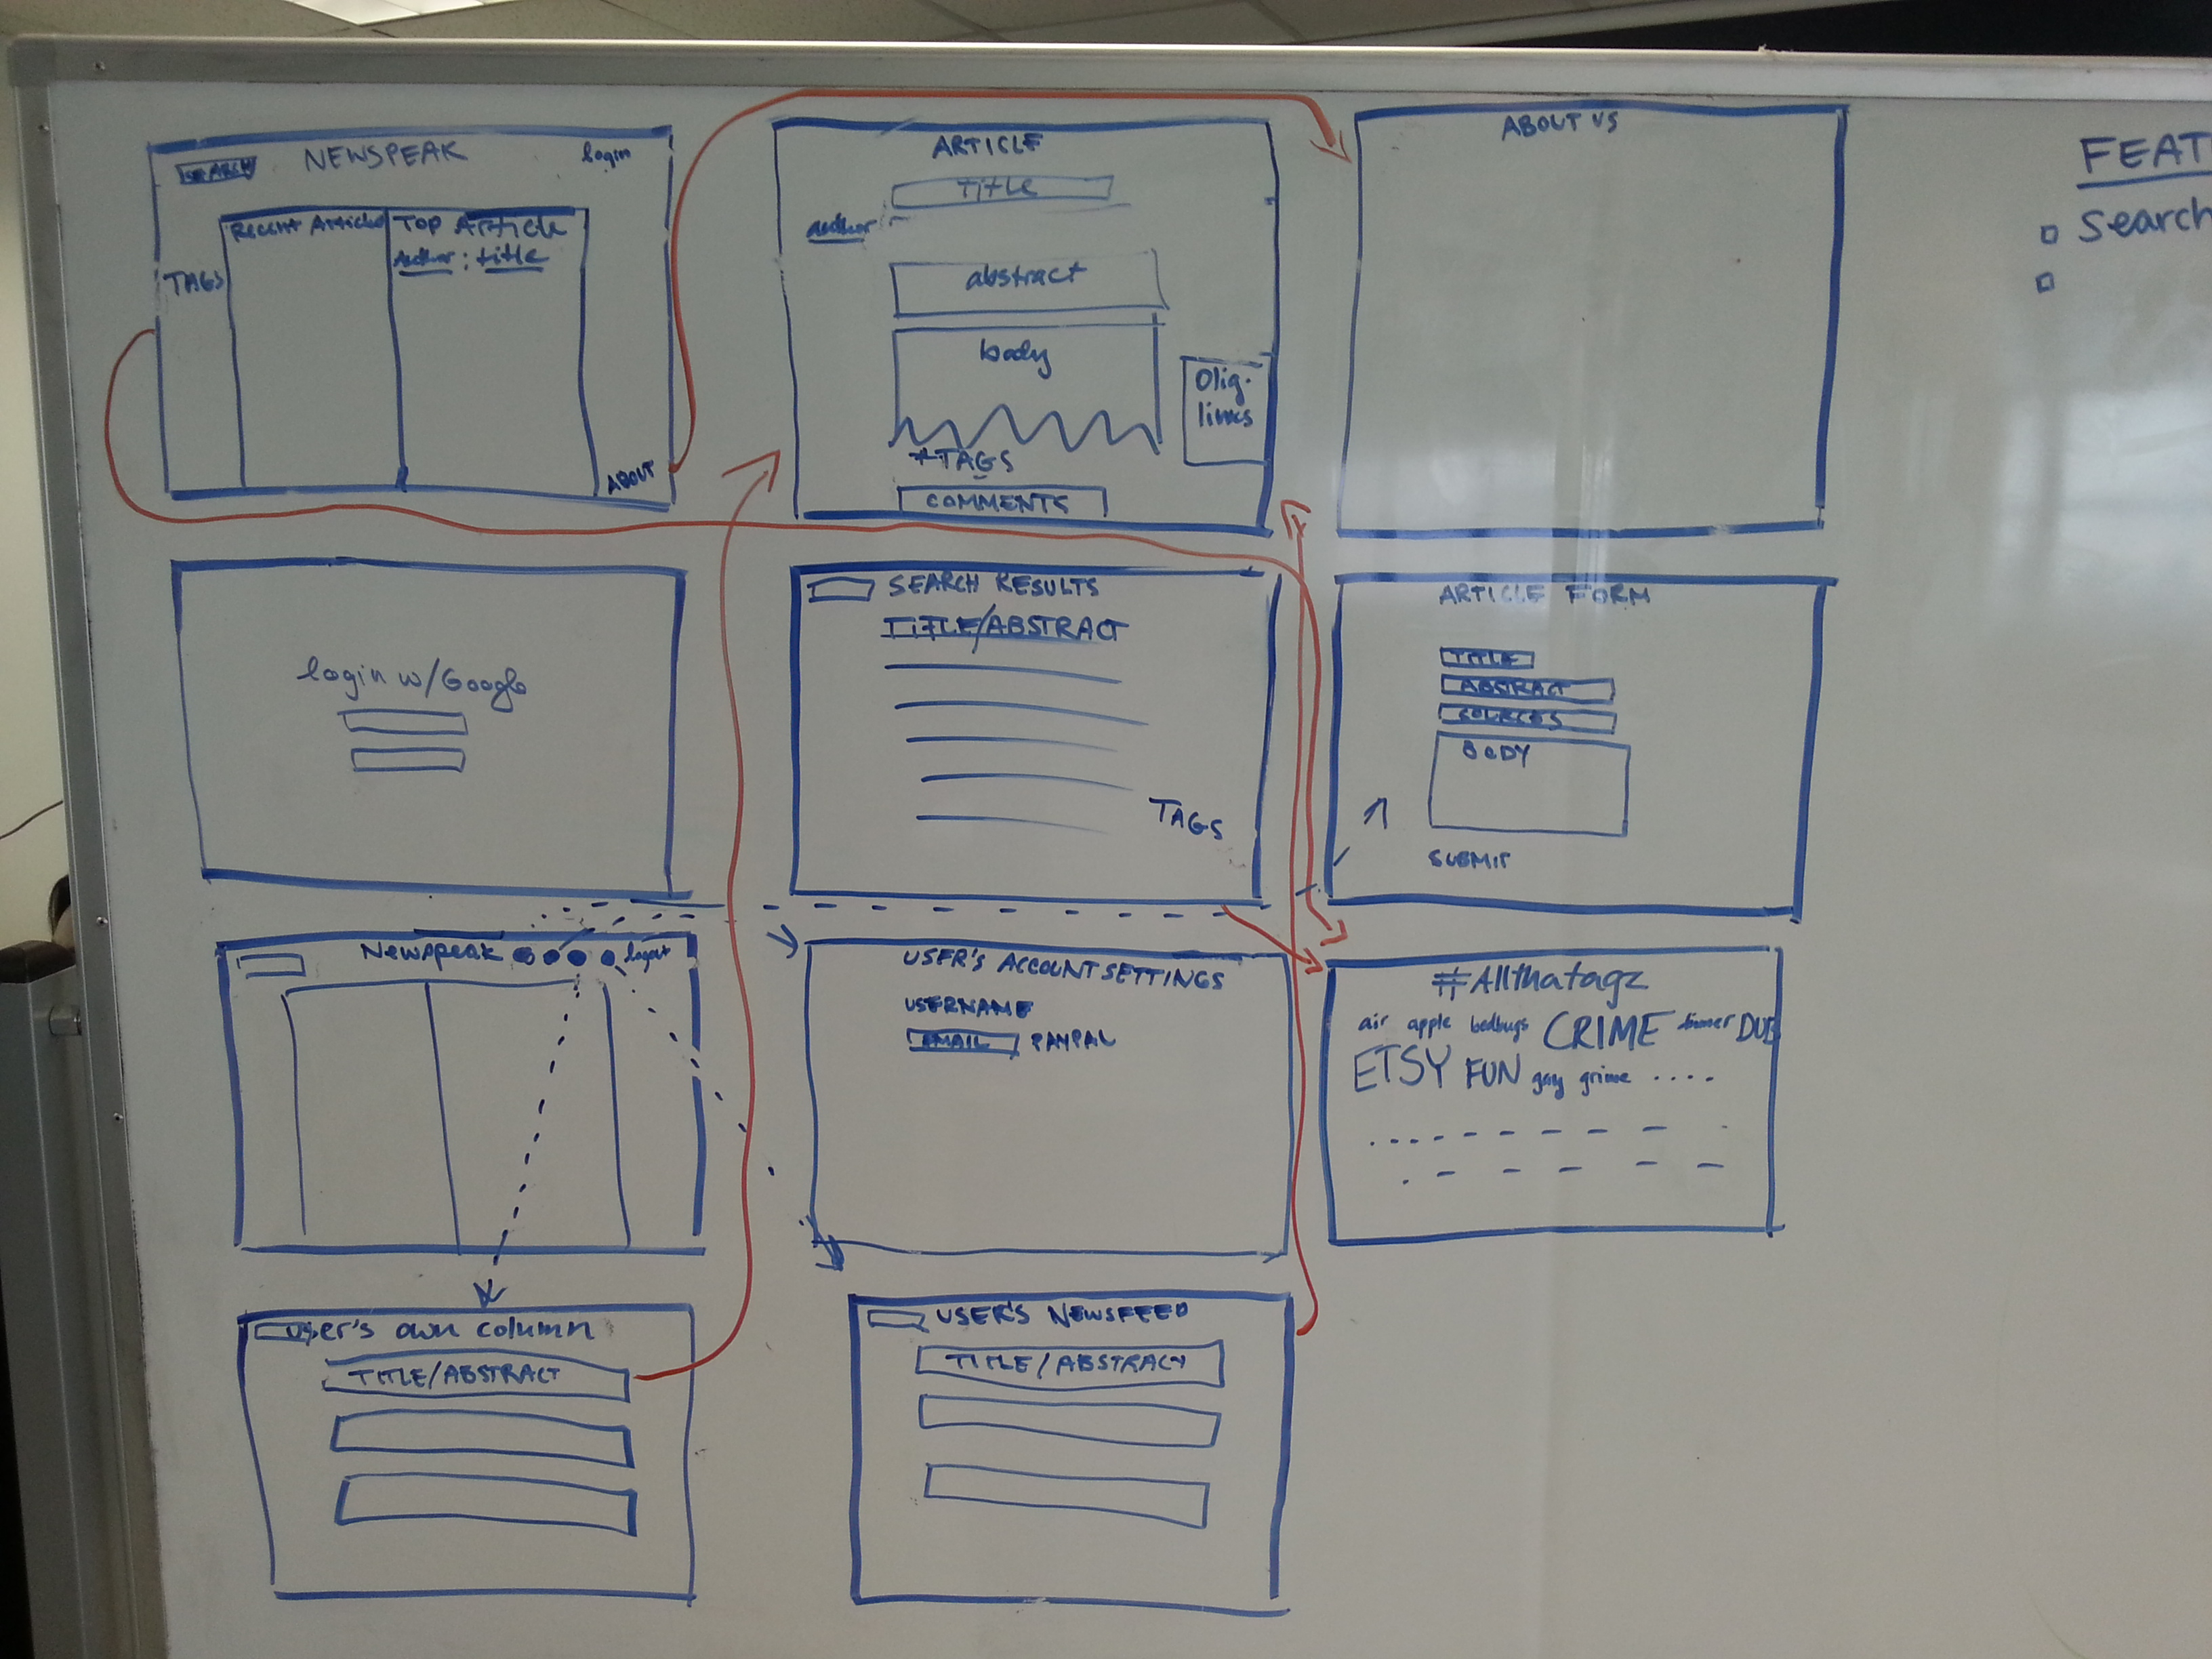 SEARCH NEWSPEAK login
TAGS
Recent Article
Top Article
Author : title
ABOUT
ARTICLE
title
author
abstract
body
Olig.
links
*TAGS
COMMENTS
ABOUT US
FEAT
Search
login w/Google
SEARCH RESULTS
TITLE/ABSTRACT
TAGS
ARTICLE FORM
TITLE
ABSTRACT
SOURCES
BODY
SUBMIT
Newspeak logout
USER'S ACCOUNT SETTINGS
USERNAME
EMAIL PAYPAL
#Allthatagz
air apple bedbugs CRIME dinner DUB
ETSY FUN gay grime ....
User's own column
TITLE/ABSTRACT
USER'S NEWSFEED
TITLE/ABSTRACT